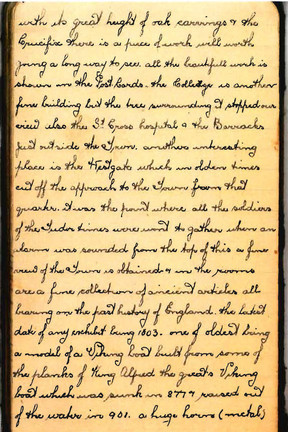 with its great height of oak carvings & the
Crucifix there is a piece of work well worth
going a long way to see. all the beautifull work is
shown on the Post Cards. the Colledge is another
fine building but the trees surrounding it stopped our
view also the St Cross hospital & the Barracks
just outside the Town. another interesting
place is the Westgate which in olden times
cut off the approach to the Town from that
quarter. it was the point where all the soldiers
of the Tudor times were wont to gather when an
alarm was sounded from the top of this a fine
view of the Town is obtained & in the rooms
are a fine collection of ancient articles all
bearing on the past history of England. the latest
date of any exhibit being 1803. one of oldest being
a model of a Viking boat built from some of
the planks of King Alfred the greats Viking
boat which was sunk in 877 & raised out
of the water in 901. a huge horn (metal)